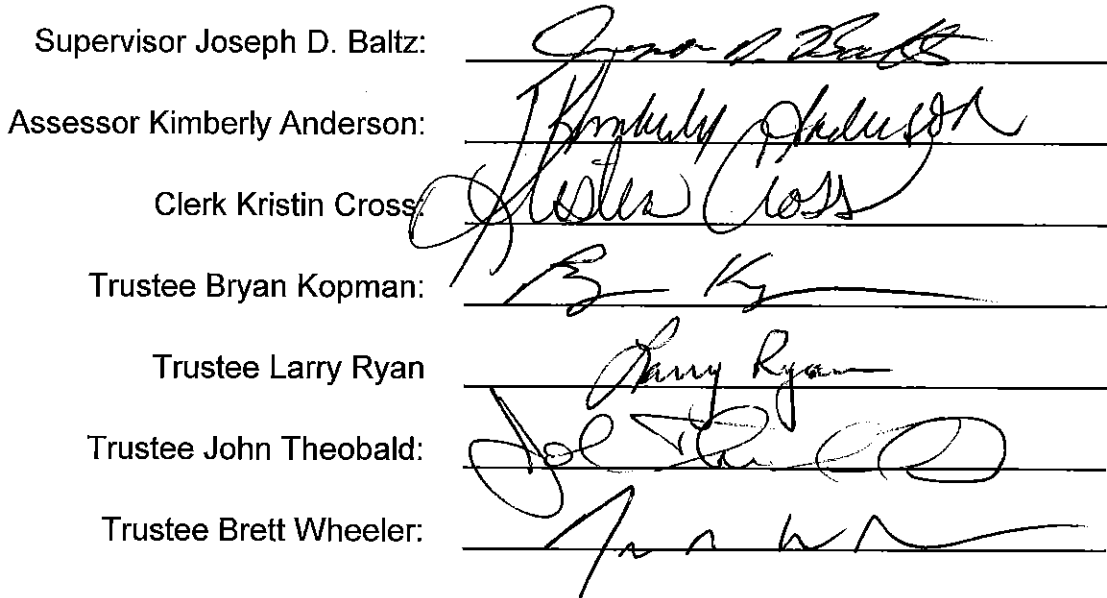 Supervisor Joseph D. Baltz: Joseph D. Baltz
Assessor Kimberly Anderson: Kimberly Anderson
Clerk Kristin Cross: Kristin Cross
Trustee Bryan Kopman:
Trustee Larry Ryan Larry Ryan
Trustee John Theobald:
Trustee Brett Wheeler: